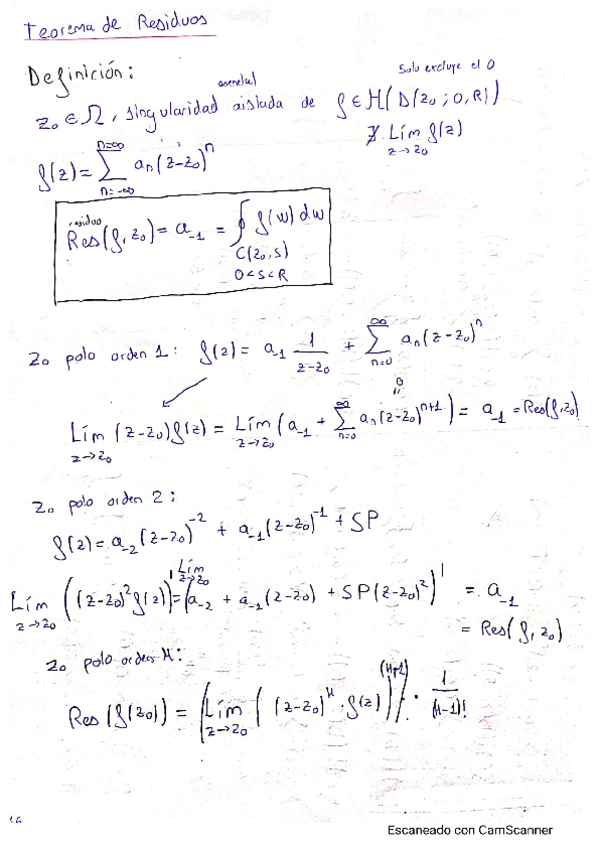 Teorema de Residuos
Definición:
Solo excluye el 0
esencial
z₀ ∈ Ω, singularidad aislada de f ∈ H(D(z₀; 0, R))
∄ Lím f(z)
z→z₀
f(z) = ∑_{n=-∞}^{n=∞} aₙ(z-z₀)ⁿ
residuo
Res(f, z₀) = a₋₁ = ∮ f(w) dw
C(z₀, s)
0<s<R
z₀ polo orden 1: f(z) = a₋₁ 1/(z-z₀) + ∑_{n=0}^{∞} aₙ(z-z₀)ⁿ
0
Lím_{z→z₀} (z-z₀)f(z) = Lím_{z→z₀} (a₋₁ + ∑_{n=0}^{∞} aₙ(z-z₀)ⁿ⁺¹) = a₋₁ = Res(f, z₀)
z₀ polo orden 2:
f(z) = a₋₂(z-z₀)⁻² + a₋₁(z-z₀)⁻¹ + SP
Lím_{z→z₀} ((z-z₀)²f(z))' = Lím_{z→z₀} (a₋₂ + a₋₁(z-z₀) + SP(z-z₀)²)' = a₋₁
= Res(f, z₀)
z₀ polo orden M:
Res(f(z₀)) = (Lím_{z→z₀} ((z-z₀)^M · f(z))^{(M-1)}) · 1/(M-1)!
Escaneado con CamScanner